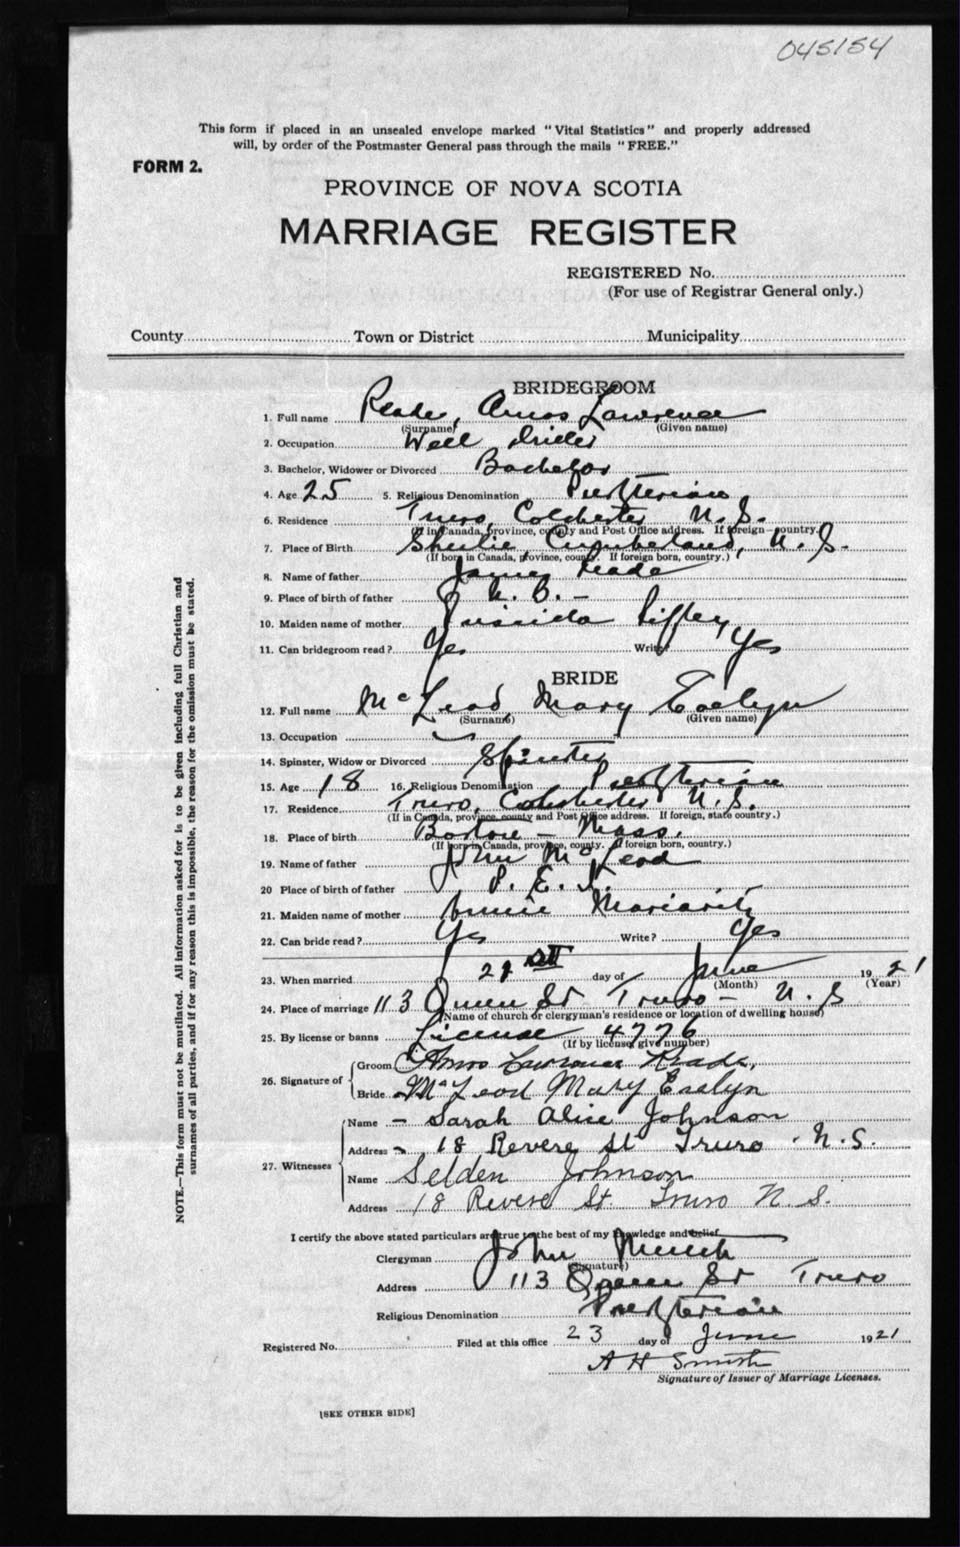 045154
This form if placed in an unsealed envelope marked "Vital Statistics" and properly addressed
will, by order of the Postmaster General pass through the mails "FREE."
FORM 2.
PROVINCE OF NOVA SCOTIA
MARRIAGE REGISTER
REGISTERED No.
(For use of Registrar General only.)
County Town or District Municipality
BRIDEGROOM
1. Full name Reade, Amos Lawrence
(Surname) (Given name)
2. Occupation Well Driller
3. Bachelor, Widower or Divorced Bachelor
4. Age 25 5. Religious Denomination Presbyterian
6. Residence Truro, Colchester N.S.
(If in Canada, province, county and Post Office address. If foreign—country.)
7. Place of Birth Cumberland, N.S.
(If born in Canada, province, county. If foreign born, country.)
8. Name of father James Reade
9. Place of birth of father N.B. —
10. Maiden name of mother
11. Can bridegroom read? Yes Write? Yes
BRIDE
12. Full name McLeod, Mary Evelyn
(Surname) (Given name)
13. Occupation
14. Spinster, Widow or Divorced Spinster
15. Age 18 16. Religious Denomination Presbyterian
17. Residence Truro, Colchester N.S.
(If in Canada, province, county and Post Office address. If foreign, state country.)
18. Place of birth Boston — Mass.
(If born in Canada, province, county. If foreign born, country.)
19. Name of father John McLeod
20 Place of birth of father P.E.I.
21. Maiden name of mother Annie
22. Can bride read? Yes Write? Yes
23. When married 21st day of June 1921
(Month) (Year)
24. Place of marriage 113 Queen St Truro — N.S
(Name of church or clergyman's residence or location of dwelling house)
25. By license or banns License 4776
(If by license, give number)
26. Signature of
Groom Amos Lawrence Reade,
Bride McLeod Mary Evelyn
27. Witnesses
Name — Sarah Alice Johnson
Address — 18 Revere St Truro N.S.
Name Selden Johnson
Address 18 Revere St. Truro N.S.
I certify the above stated particulars are true to the best of my knowledge and belief.
Clergyman John
(Signature)
Address 113 Queen St Truro
Religious Denomination Presbyterian
Registered No. Filed at this office 23 day of June 1921
A H Smith
Signature of Issuer of Marriage Licenses.
[SEE OTHER SIDE]
NOTE.—This form must not be mutilated. All information asked for is to be given including full Christian and
surnames of all parties, and if for any reason this is impossible, the reason for the omission must be stated.